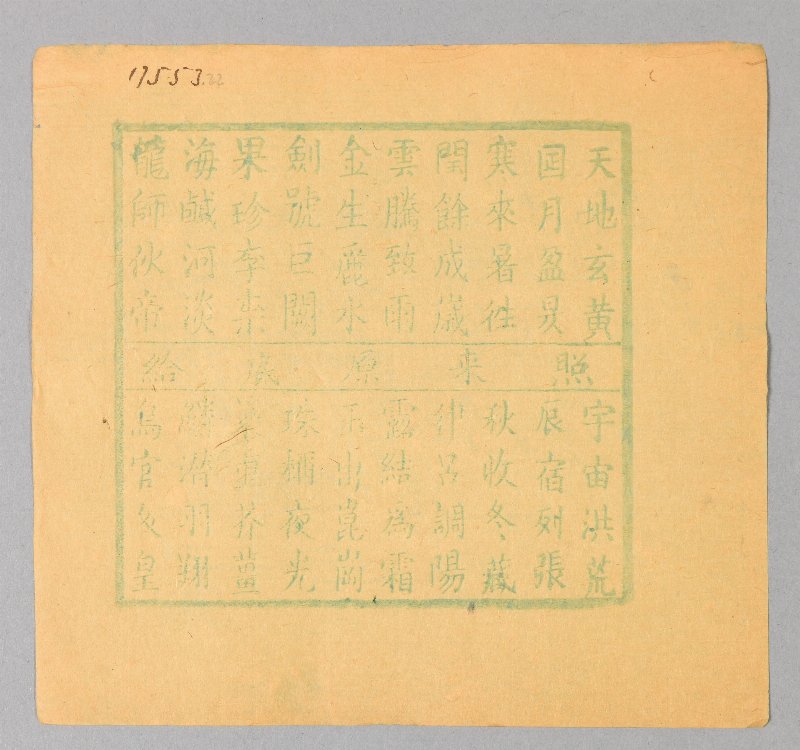 17553.22
天地玄黃
囸月盈昃
寒來暑往
閏餘成歲
雲騰致雨
金生麗水
劍號巨闕
果珍李柰
海鹹河淡
龍師伙帝
照来原底給
宇宙洪荒
辰宿列張
秋收冬藏
律呂調陽
露結爲霜
玉出崑崗
珠稱夜光
菜重芥薑
鱗潛羽翔
鳥官皇